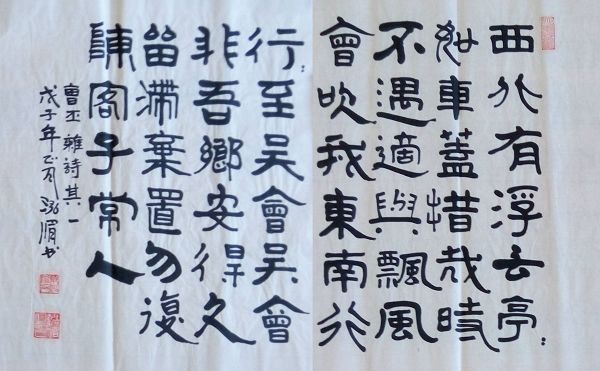 西北有浮云亭〻
如車蓋惜哉時
不遇適與飄風
會吹我東南行
行〻至吳會吳會
非吾鄉安得久
畄滯棄置勿復
陳客子常人
曹丕雜詩其一
戊子年正月書